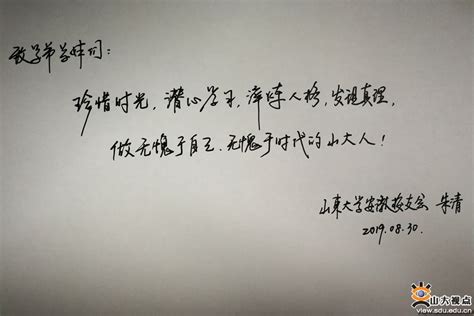 致学弟学妹们：
珍惜时光，潜心学习，淬炼人格，发现真理，
做无愧于自己、无愧于时代的山大人！
山東大学安徽校友会 朱清
2019.08.30.
山大视点
view.sdu.edu.cn